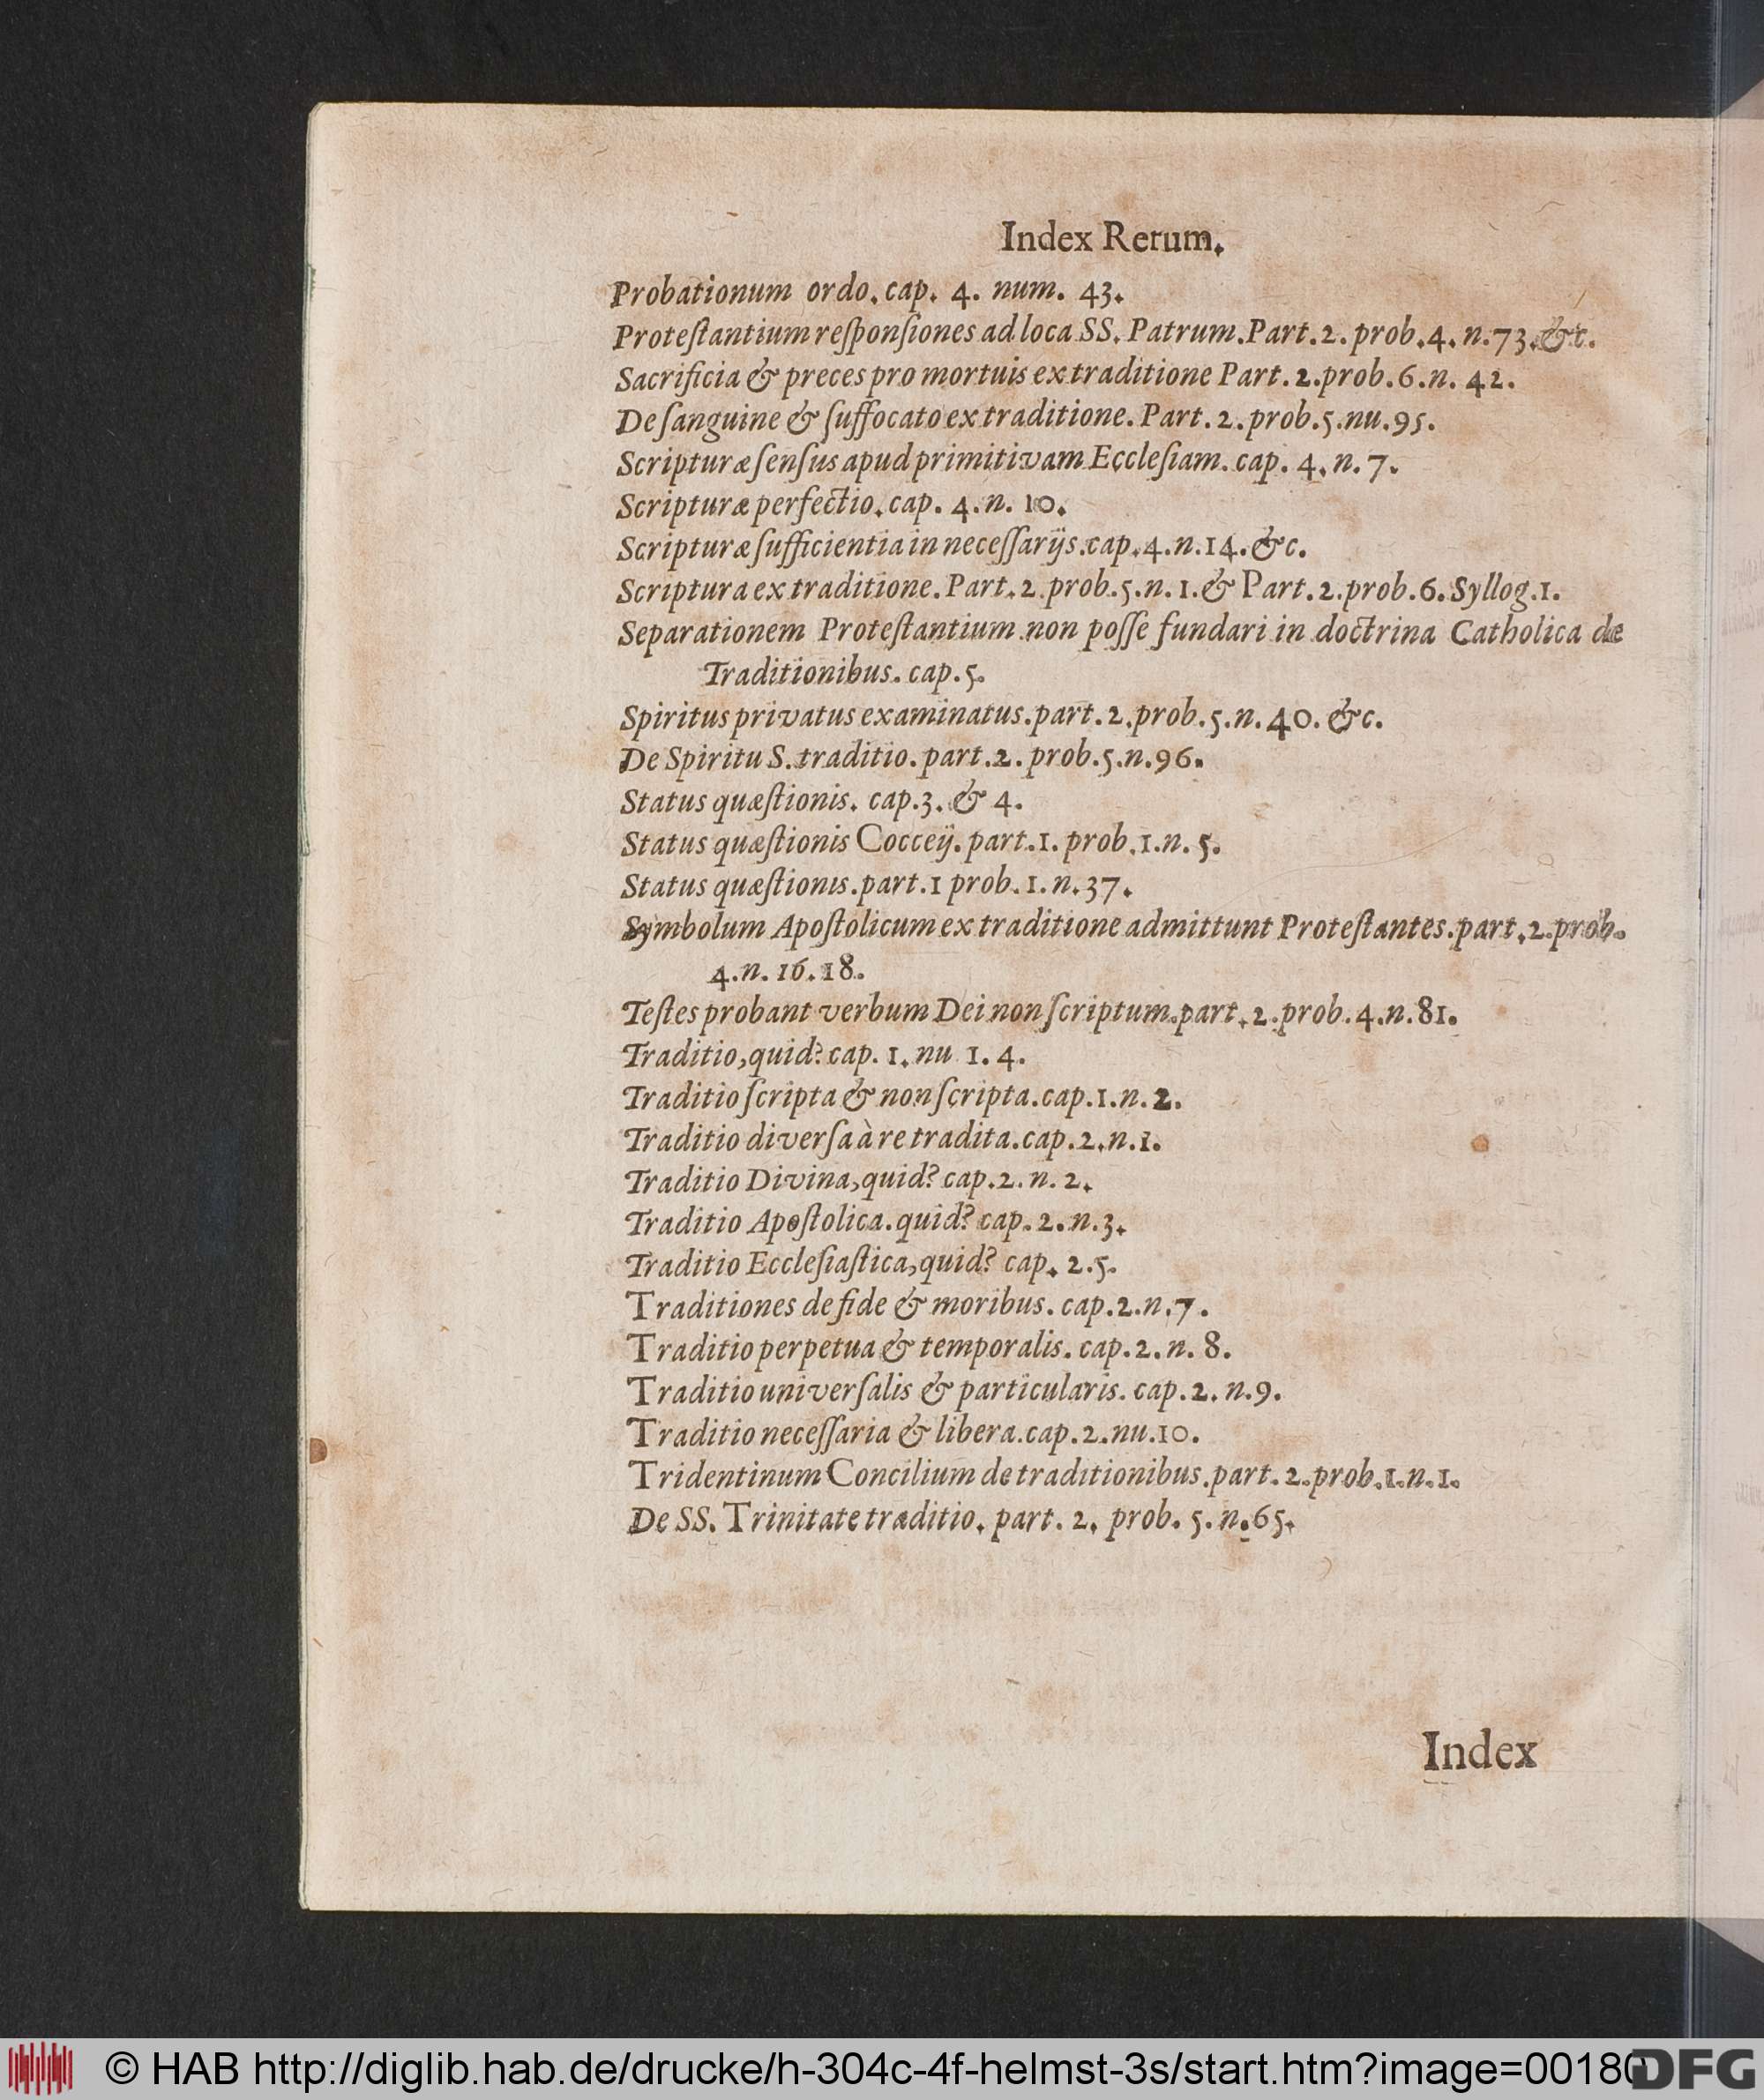 Index Rerum.
Probationum ordo. cap. 4. num. 43.
Proteſtantium reſponſiones ad loca SS. Patrum. Part. 2. prob. 4. n. 73. &c.
Sacrificia & preces pro mortuis ex traditione Part. 2. prob. 6. n. 42.
De ſanguine & ſuffocato ex traditione. Part. 2. prob. 5. nu. 95.
Scripturæ ſenſus apud primitivam Eccleſiam. cap. 4. n. 7.
Scripturæ perfectio. cap. 4. n. 10.
Scripturæ ſufficientia in neceſſarijs. cap. 4. n. 14. &c.
Scriptura ex traditione. Part. 2. prob. 5. n. 1. & Part. 2. prob. 6. Syllog. 1.
Separationem Proteſtantium non poſſe fundari in doctrina Catholica de
Traditionibus. cap. 5.
Spiritus privatus examinatus. part. 2. prob. 5. n. 40. &c.
De Spiritu S. traditio. part. 2. prob. 5. n. 96.
Status quæſtionis. cap. 3. & 4.
Status quæſtionis Coccej. part. 1. prob. 1. n. 5.
Status quæſtionis. part. 1 prob. 1. n. 37.
Symbolum Apoſtolicum ex traditione admittunt Proteſtantes. part. 2. prob.
4. n. 16. 18.
Teſtes probant verbum Dei non ſcriptum. part. 2. prob. 4. n. 81.
Traditio, quid? cap. 1. nu 1. 4.
Traditio ſcripta & non ſcripta. cap. 1. n. 2.
Traditio diverſa à re tradita. cap. 2. n. 1.
Traditio Divina, quid? cap. 2. n. 2.
Traditio Apoſtolica. quid? cap. 2. n. 3.
Traditio Eccleſiaſtica, quid? cap. 2. 5.
Traditiones de fide & moribus. cap. 2. n. 7.
Traditio perpetua & temporalis. cap. 2. n. 8.
Traditio univerſalis & particularis. cap. 2. n. 9.
Traditio neceſſaria & libera. cap. 2. nu. 10.
Tridentinum Concilium de traditionibus. part. 2. prob. 1. n. 1.
De SS. Trinitate traditio. part. 2. prob. 5. n. 65.
Index
© HAB http://diglib.hab.de/drucke/h-304c-4f-helmst-3s/start.htm?image=00180
DFG